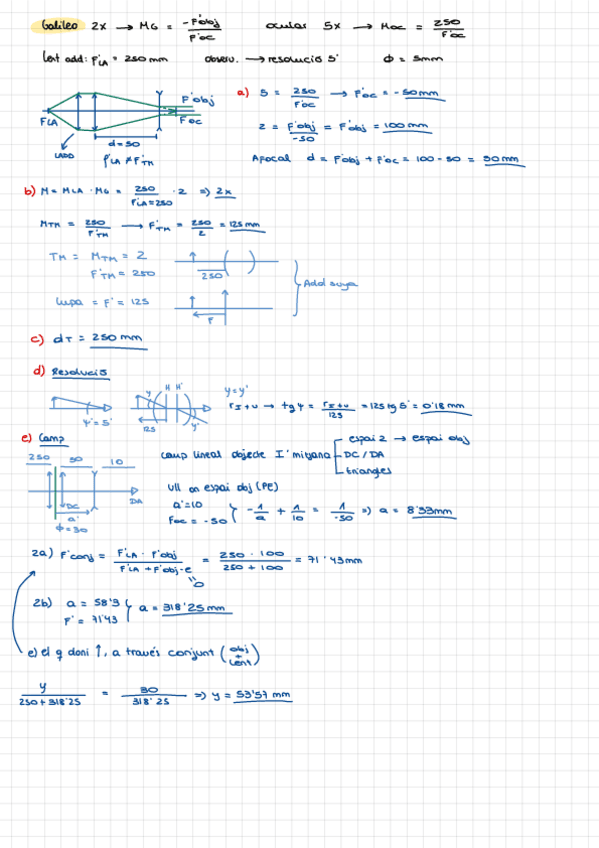 Galileo 2x → MG = -F'obj / F'oc ocular 5x → Moc = 250 / F'oc
Lent add: F'LA = 250 mm observ. → resolució 5' ϕ = 5mm
a) 5 = 250 / F'oc → F'oc = -50mm
F'obj
Foc
FLA
d=50
LADD
F'LA ≠ F'TM
2 = F'obj / -50 = F'obj = 100mm
Afocal d = F'obj + F'oc = 100 - 50 = 50mm
b) M = MLA · MG = 250 / F'LA=250 · 2 => 2x
MTM = 250 / F'TM → F'TM = 250 / 2 = 125 mm
TM = MTM = 2
F'TM = 250
250
Add suya
Lupa = F' = 125
F
c) dT = 250 mm
d) Resolució
ψ' = 5'
y H H'
125
y'
y = y'
rI+u → tg ψ = rI+u / 125 = 125 tg 5' = 0'18 mm
e) Camp
250 50 10
DC
DA
a'
ϕ = 30
camp lineal objecte I' mitjana
espai 2 → espai obj
DC / DA
triangles
Ull en espai obj (PE)
a' = 10
Foc = -50
-1/a + 1/10 = 1/-50 => a = 8'33mm
2a) F'conj = F'LA · F'obj / F'LA + F'obj - e = 250 · 100 / 250 + 100 = 71'43mm
0
2b) a = 58'3
F' = 71'43
a = 318'25 mm
e) el q doni ↑, a través conjunt (obj + lent)
y / 250 + 318'25 = 30 / 318'25 => y = 53'57 mm